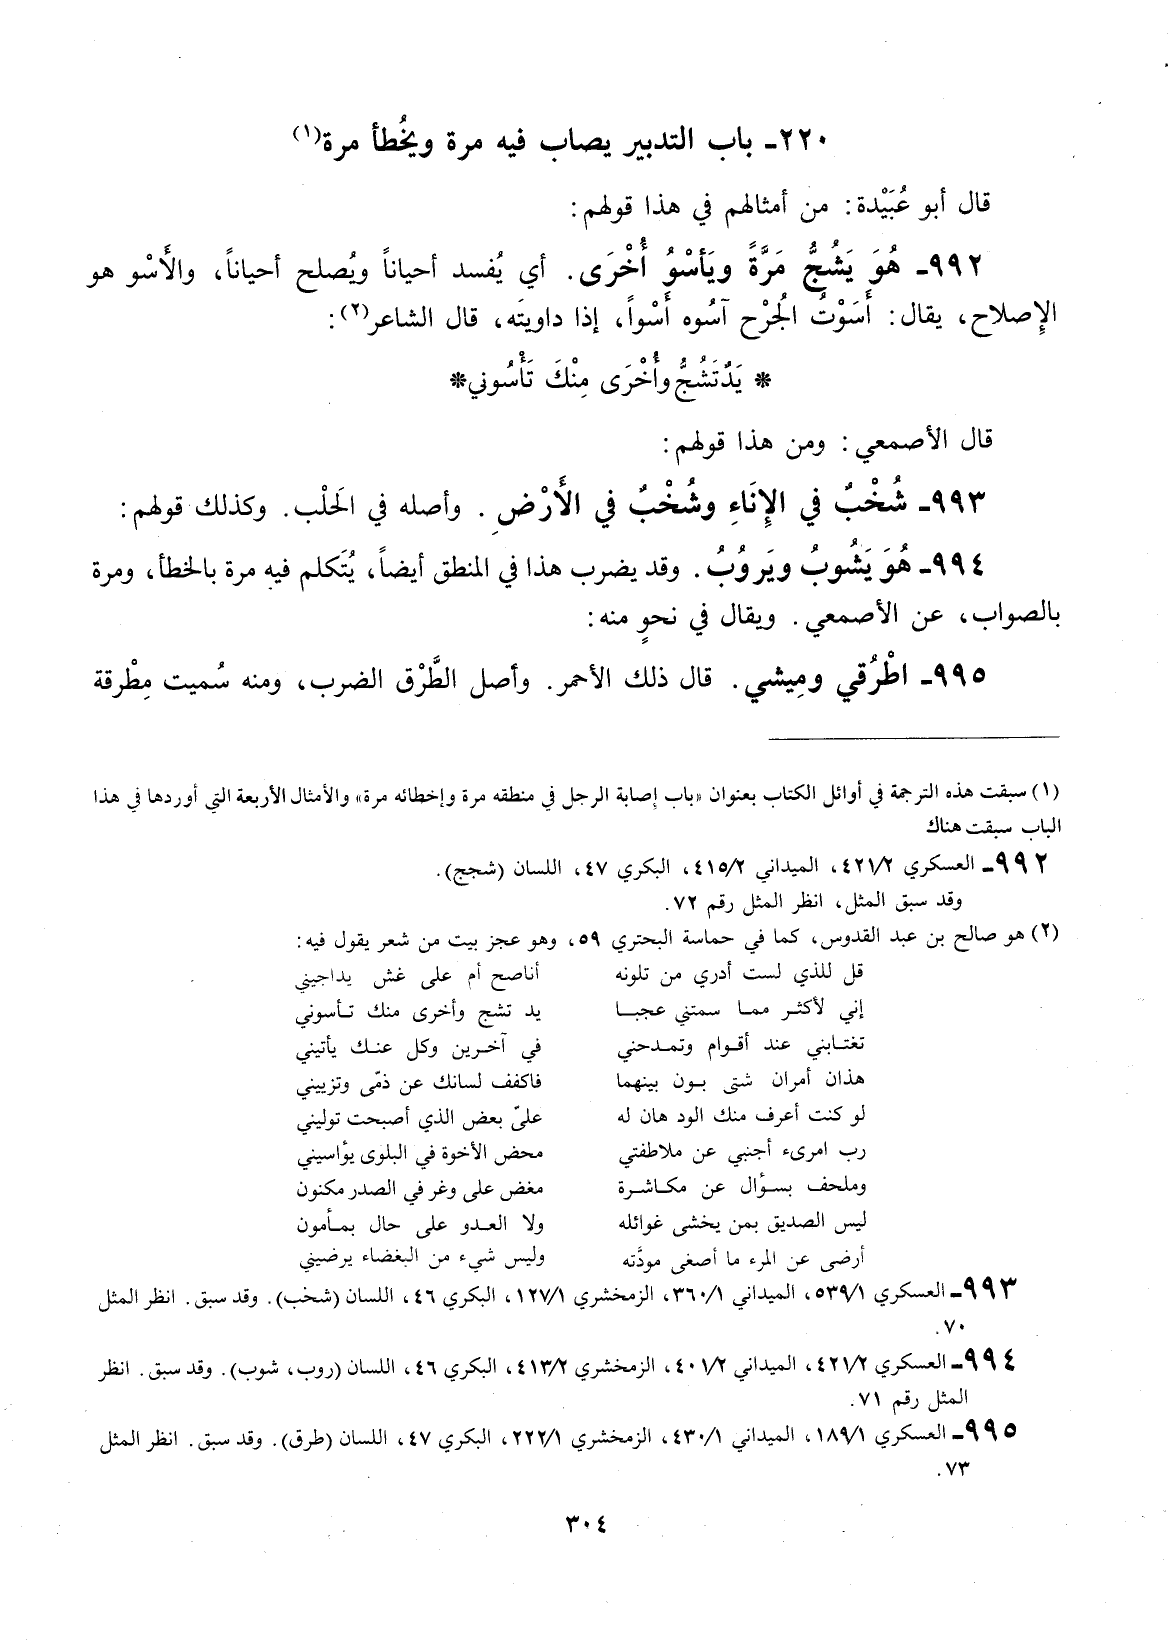 ٢٢٠ـ باب التدبير يصاب فيه مرة ويخُطأ مرة(١)
قال أبو عُبَيْدة: من أمثالهم في هذا قولهم:
٩٩٢ـ هُوَ يَشُجُّ مَرَّةً ويَأسْوُ أُخْرَى. أي يُفسد أحياناً ويُصلح أحياناً، والأَسْو هو
الإِصلاح، يقال: أَسَوْتُ الجُرْح آسُوه أَسْواً، إذا داويتَه، قال الشاعر(٢):
* يَدٌ تَشُجُّ وأُخْرَى مِنْكَ تَأْسُوني*
قال الأصمعي: ومن هذا قولهم:
٩٩٣ـ شُخْبٌ في الإِنَاءِ وشُخْبٌ في الأَرْضِ. وأصله في الحَلْب. وكذلك قولهم:
٩٩٤ـ هُوَ يَشُوبُ ويَروُبُ. وقد يضرب هذا في المنطق أيضاً، يُتَكلم فيه مرة بالخطأ، ومرة
بالصواب، عن الأصمعي. ويقال في نحوٍ منه:
٩٩٥ـ اطْرُقي ومِيشي. قال ذلك الأحمر. وأصل الطَّرْق الضرب، ومنه سُميت مِطْرقة
(١) سبقت هذه الترجمة في أوائل الكتاب بعنوان «باب إصابة الرجل في منطقه مرة وإخطائه مرة» والأمثال الأربعة التي أوردها في هذا
الباب سبقت هناك
٩٩٢ـ العسكري ٤٢١/٢، الميداني ٤١٥/٢، البكري ٤٧، اللسان (شجج).
وقد سبق المثل، انظر المثل رقم ٧٢.
(٢) هو صالح بن عبد القدوس، كما في حماسة البحتري ٥٩، وهو عجز بيت من شعر يقول فيه:
قل للذي لست أدري من تلونه أناصح أم على غش يداجيني
إني لأكثر مما سمتني عجبا يد تشج وأخرى منك تأسوني
تغتابني عند أقوام وتمدحني في آخرين وكل عنك يأتيني
هذان أمران شتى بون بينهما فاكفف لسانك عن ذمّى وتزييني
لو كنت أعرف منك الود هان له عليّ بعض الذي أصبحت توليني
رب امرىء أجنبي عن ملاطفتي محض الأخوة في البلوى يؤاسيني
وملحف بسؤال عن مكاشرة مغض على وغر في الصدر مكنون
ليس الصديق بمن يخشى غوائله ولا العدو على حال بمأمون
أرضى عن المرء ما أصغى مودَّته وليس شيء من البغضاء يرضيني
٩٩٣ـ العسكري ٥٣٩/١، الميداني ٣٦٠/١، الزمخشري ١٢٧/١، البكري ٤٦، اللسان (شخب). وقد سبق. انظر المثل
٧٠.
٩٩٤ـ العسكري ٤٢١/٢، الميداني ٤٠١/٢، الزمخشري ٤١٣/٢، البكري ٤٦، اللسان (روب، شوب). وقد سبق. انظر
المثل رقم ٧١.
٩٩٥ـ العسكري ١٨٩/١، الميداني ٤٣٠/١، الزمخشري ٢٢٢/١، البكري ٤٧، اللسان (طرق). وقد سبق. انظر المثل
٧٣.
٣٠٤